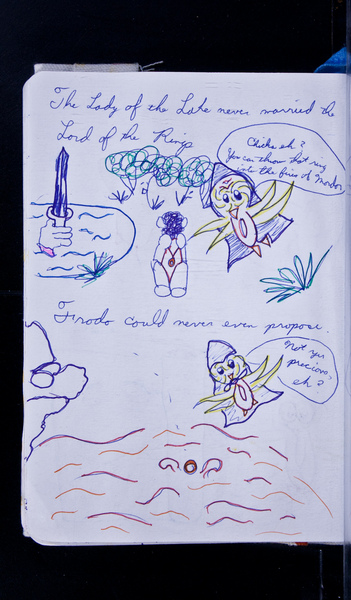 The Lady of the Lake never married the
Lord of the Rings
Chicks eh?
You can throw that ring
into the fires of Mordor
Frodo could never even propose.
Not yer
precious,
eh?